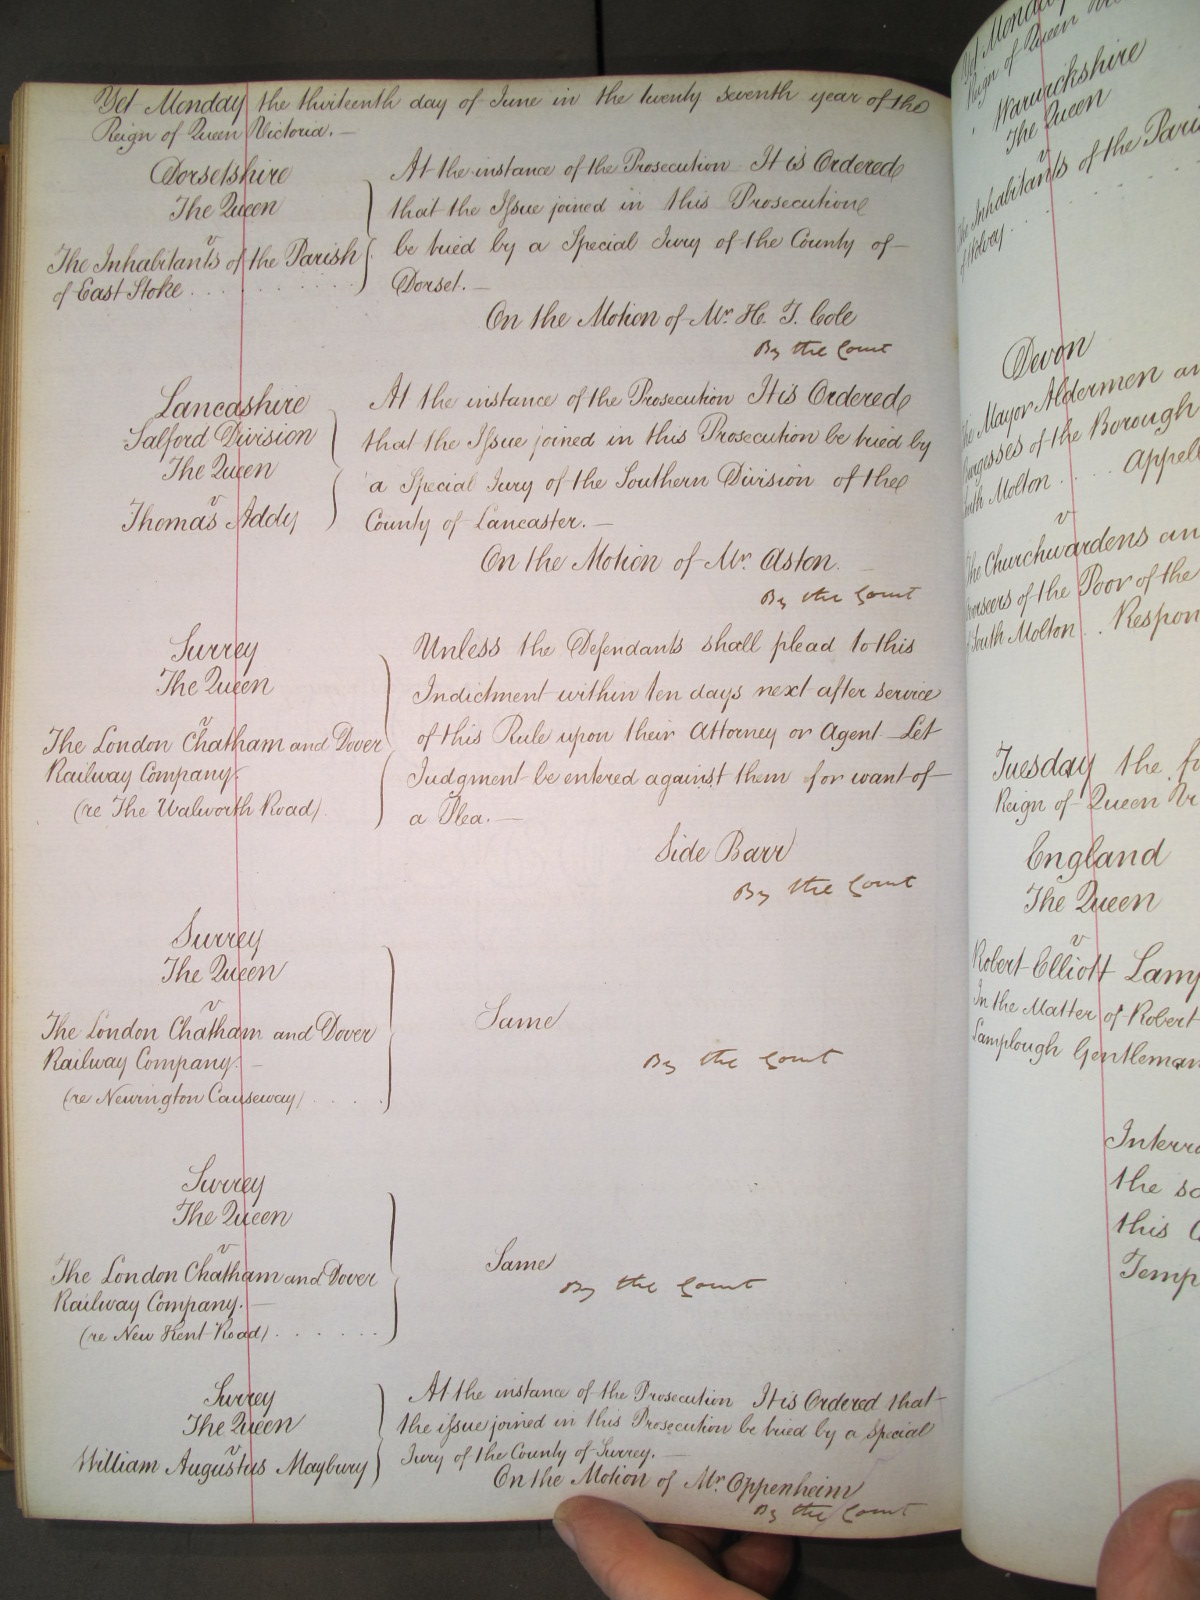 Yet Monday the thirteenth day of June in the twenty seventh year of the
Reign of Queen Victoria. —
Dorsetshire
The Queen
v
The Inhabitants of the Parish
of East Stoke . . . . . . . .
At the instance of the Prosecution It is Ordered
that the Issue joined in this Prosecution
be tried by a Special Jury of the County of
Dorset. —
On the Motion of Mr. H. T. Cole
By the Court
Lancashire
Salford Division
The Queen
v
Thomas Addy
At the instance of the Prosecution It is Ordered
that the Issue joined in this Prosecution be tried by
a Special Jury of the Southern Division of the
County of Lancaster. —
On the Motion of Mr. Aston.
By the Court
Surrey
The Queen
v
The London Chatham and Dover
Railway Company.
(re The Walworth Road)
Unless the Defendants shall plead to this
Indictment within ten days next after service
of this Rule upon their Attorney or Agent Let
Judgment be entered against them for want of
a Plea. —
Side Barr
By the Court
Surrey
The Queen
v
The London Chatham and Dover
Railway Company. —
(re Newington Causeway) . . . .
Same
By the Court
Surrey
The Queen
v
The London Chatham and Dover
Railway Company. —
(re New Kent Road) . . . . . .
Same
By the Court
Surrey
The Queen
v
William Augustus Maybury
At the instance of the Prosecution It is Ordered that
the issue joined in this Prosecution be tried by a Special
Jury of the County of Surrey. —
On the Motion of Mr. Oppenheim
By the Court
Yet Monday
Reign of Queen
Warwickshire
The Queen
v
The Inhabitants of the
of Wolvey
Devon
The Mayor Aldermen
Burgesses of the Borough
South Molton . . .
v
The Churchwardens
Overseers of the Poor of the
South Molton . .
Tuesday the
Reign of Queen
England
The Queen
v
Robert Elliott
In the Matter of Robert
Lamplough Gentleman
the
this